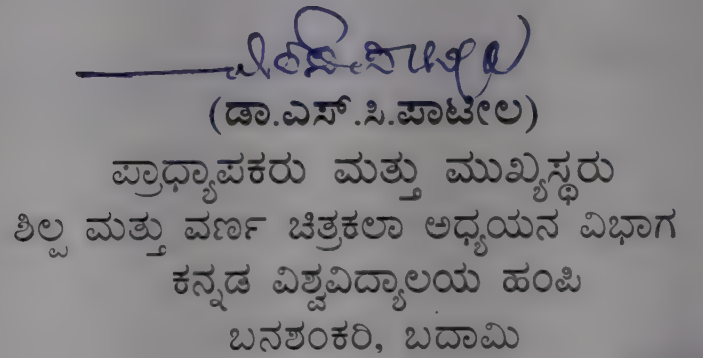 (ಡಾ.ಎಸ್.ಸಿ.ಪಾಟೀಲ)
ಪ್ರಾಧ್ಯಾಪಕರು ಮತ್ತು ಮುಖ್ಯಸ್ಥರು
ಶಿಲ್ಪ ಮತ್ತು ವರ್ಣ ಚಿತ್ರಕಲಾ ಅಧ್ಯಯನ ವಿಭಾಗ
ಕನ್ನಡ ವಿಶ್ವವಿದ್ಯಾಲಯ ಹಂಪಿ
ಬನಶಂಕರಿ, ಬದಾಮಿ